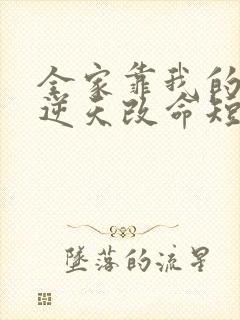 全家靠我的
逆天改命短
墜落的流星